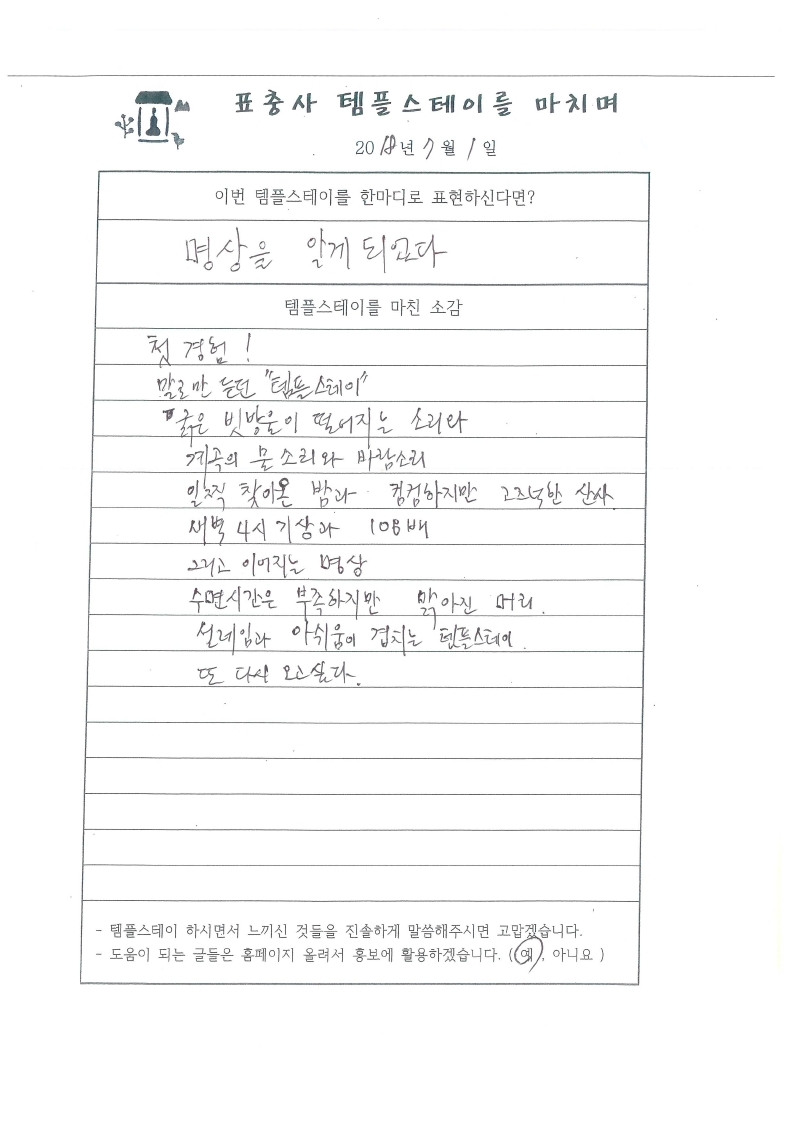 표충사 템플스테이를 마치며
2018년 7월 1일
이번 템플스테이를 한마디로 표현하신다면?
명상을 알게 되었다
템플스테이를 마친 소감
첫 경험!
말로만 듣던 "템플스테이"
굵은 빗방울이 떨어지는 소리와
계곡의 물소리와 바람소리
일찍 찾아온 밤과 컴컴하지만 고즈넉한 산사
새벽 4시 기상과 108배
그리고 이어지는 명상
수면시간은 부족하지만 맑아진 머리.
설레임과 아쉬움이 겹치는 템플스테이.
또 다시 오고싶다.
- 템플스테이 하시면서 느끼신 것들을 진솔하게 말씀해주시면 고맙겠습니다.
- 도움이 되는 글들은 홈페이지 올려서 홍보에 활용하겠습니다. ( 예 , 아니요 )